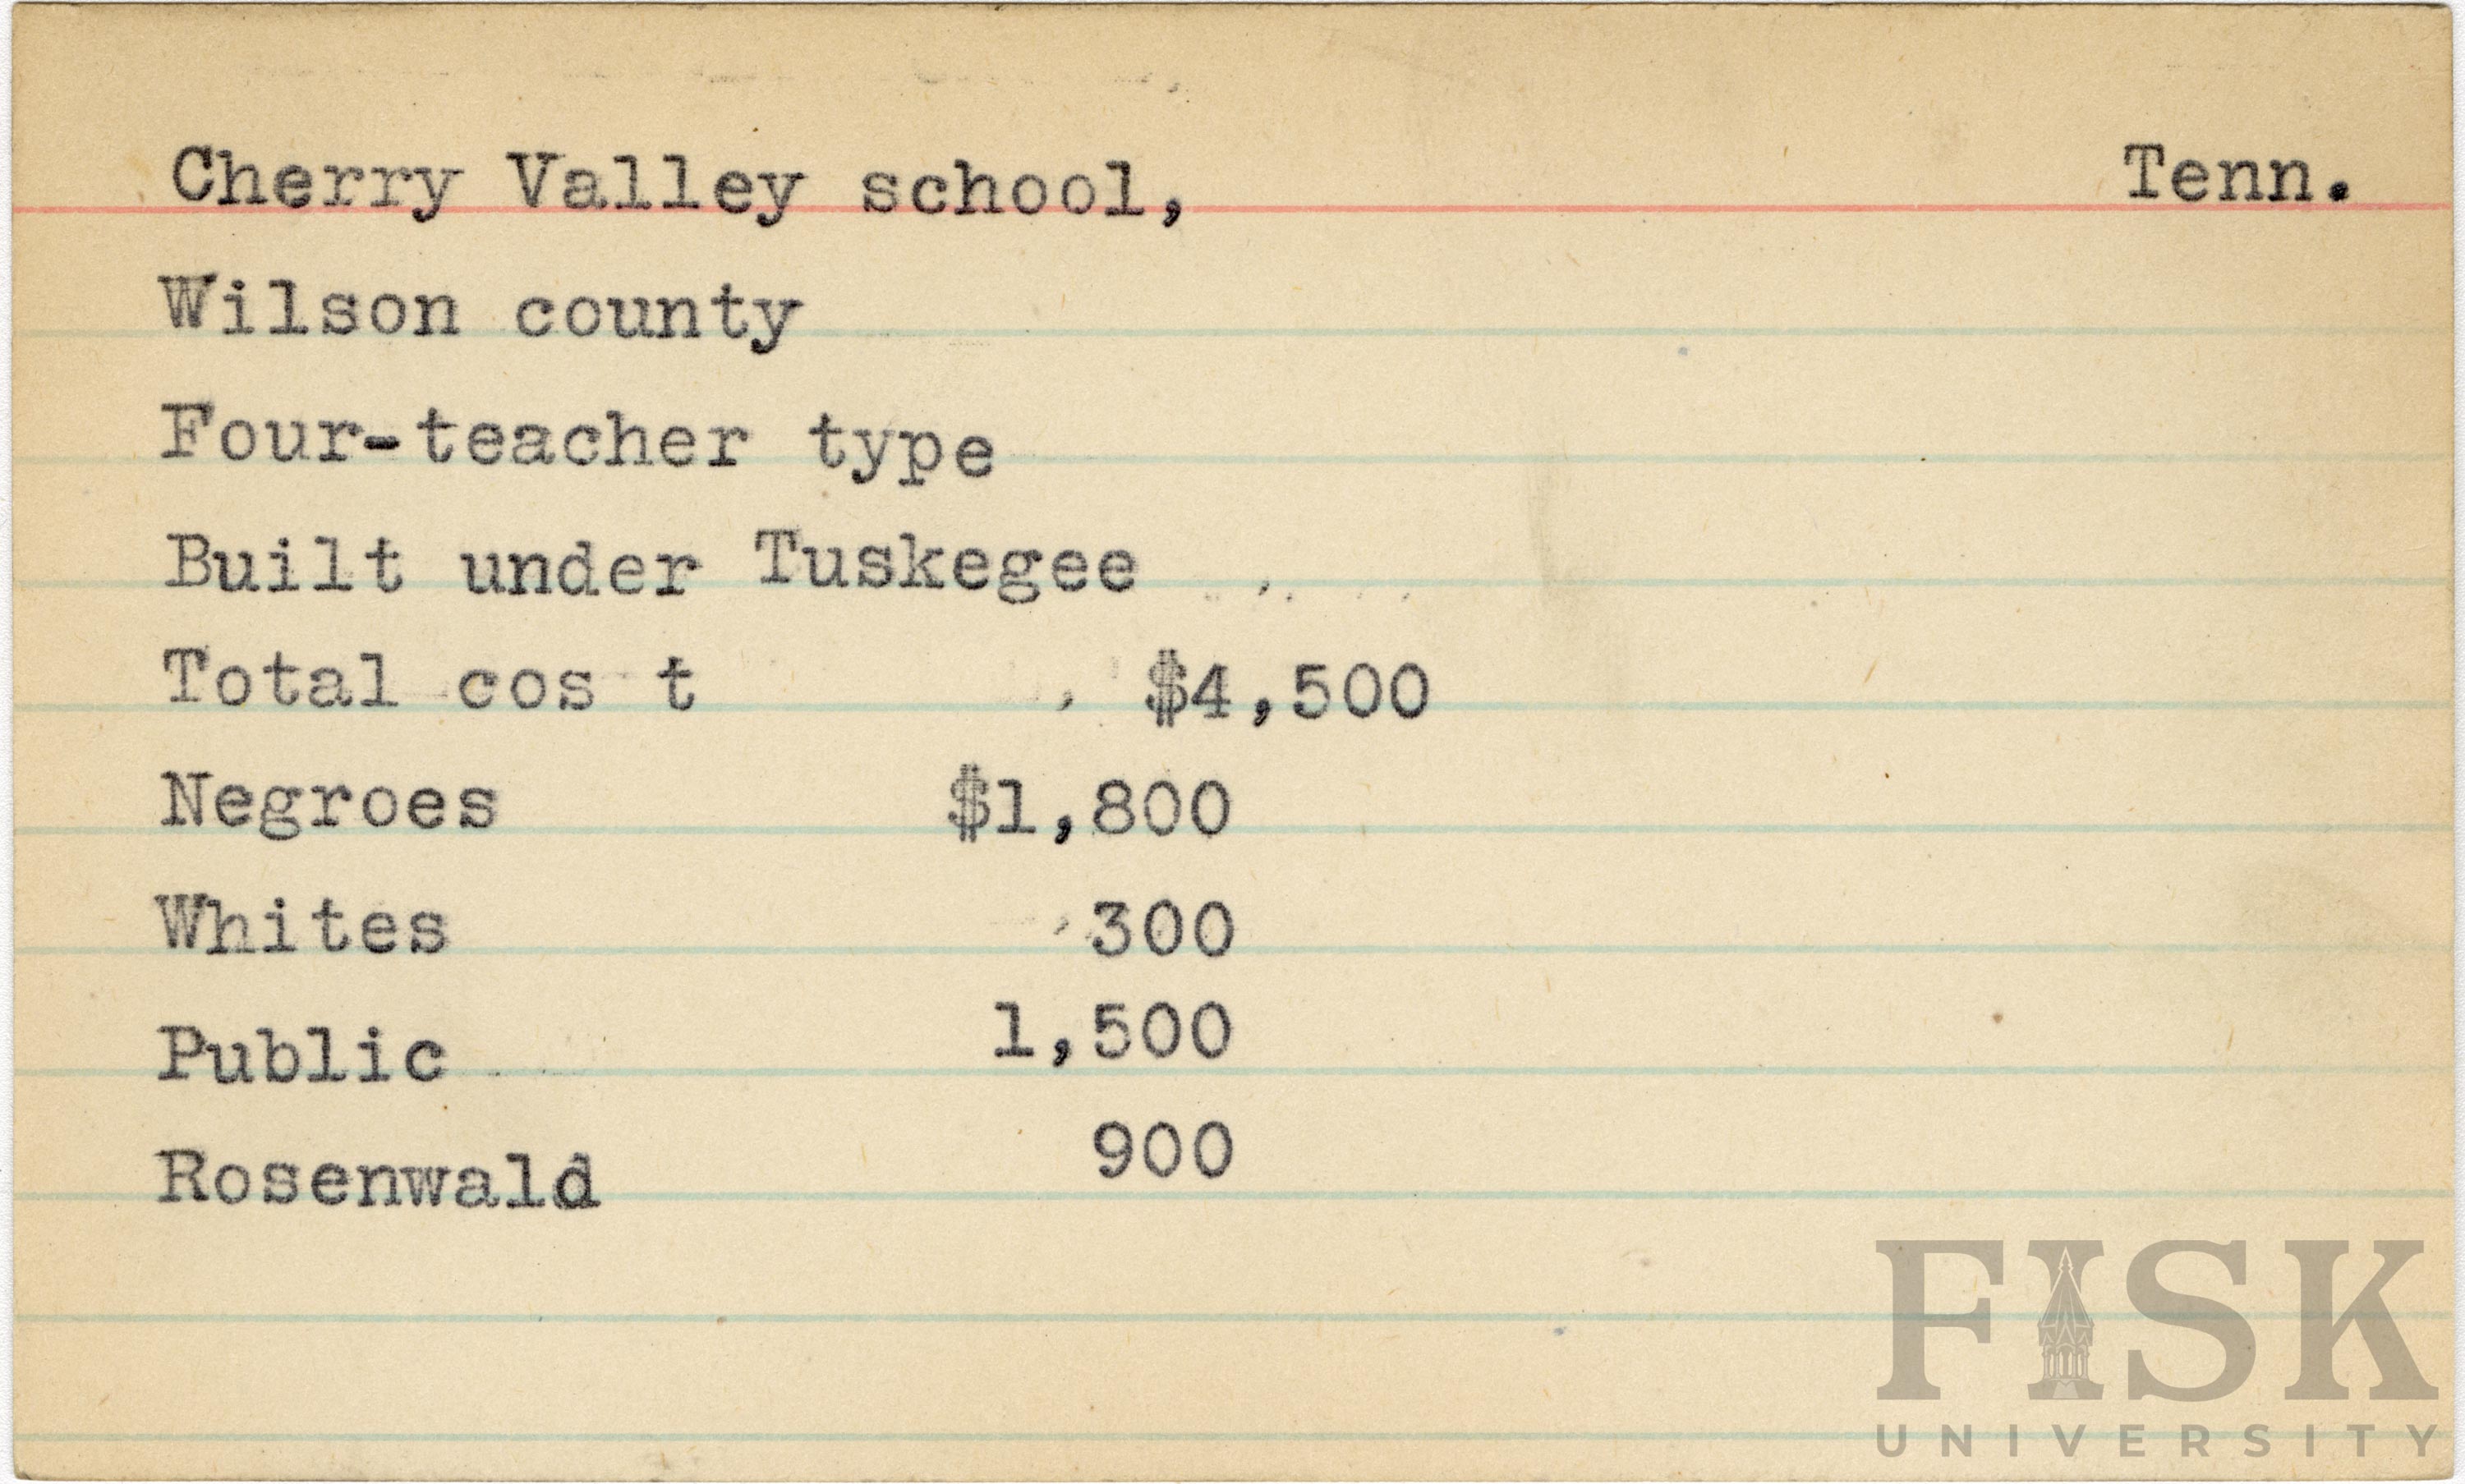 Cherry Valley school, Tenn.
Wilson county
Four-teacher type
Built under Tuskegee
Total cos t $4,500
Negroes $1,800
Whites 300
Public 1,500
Rosenwald 900
FISK
UNIVERSITY